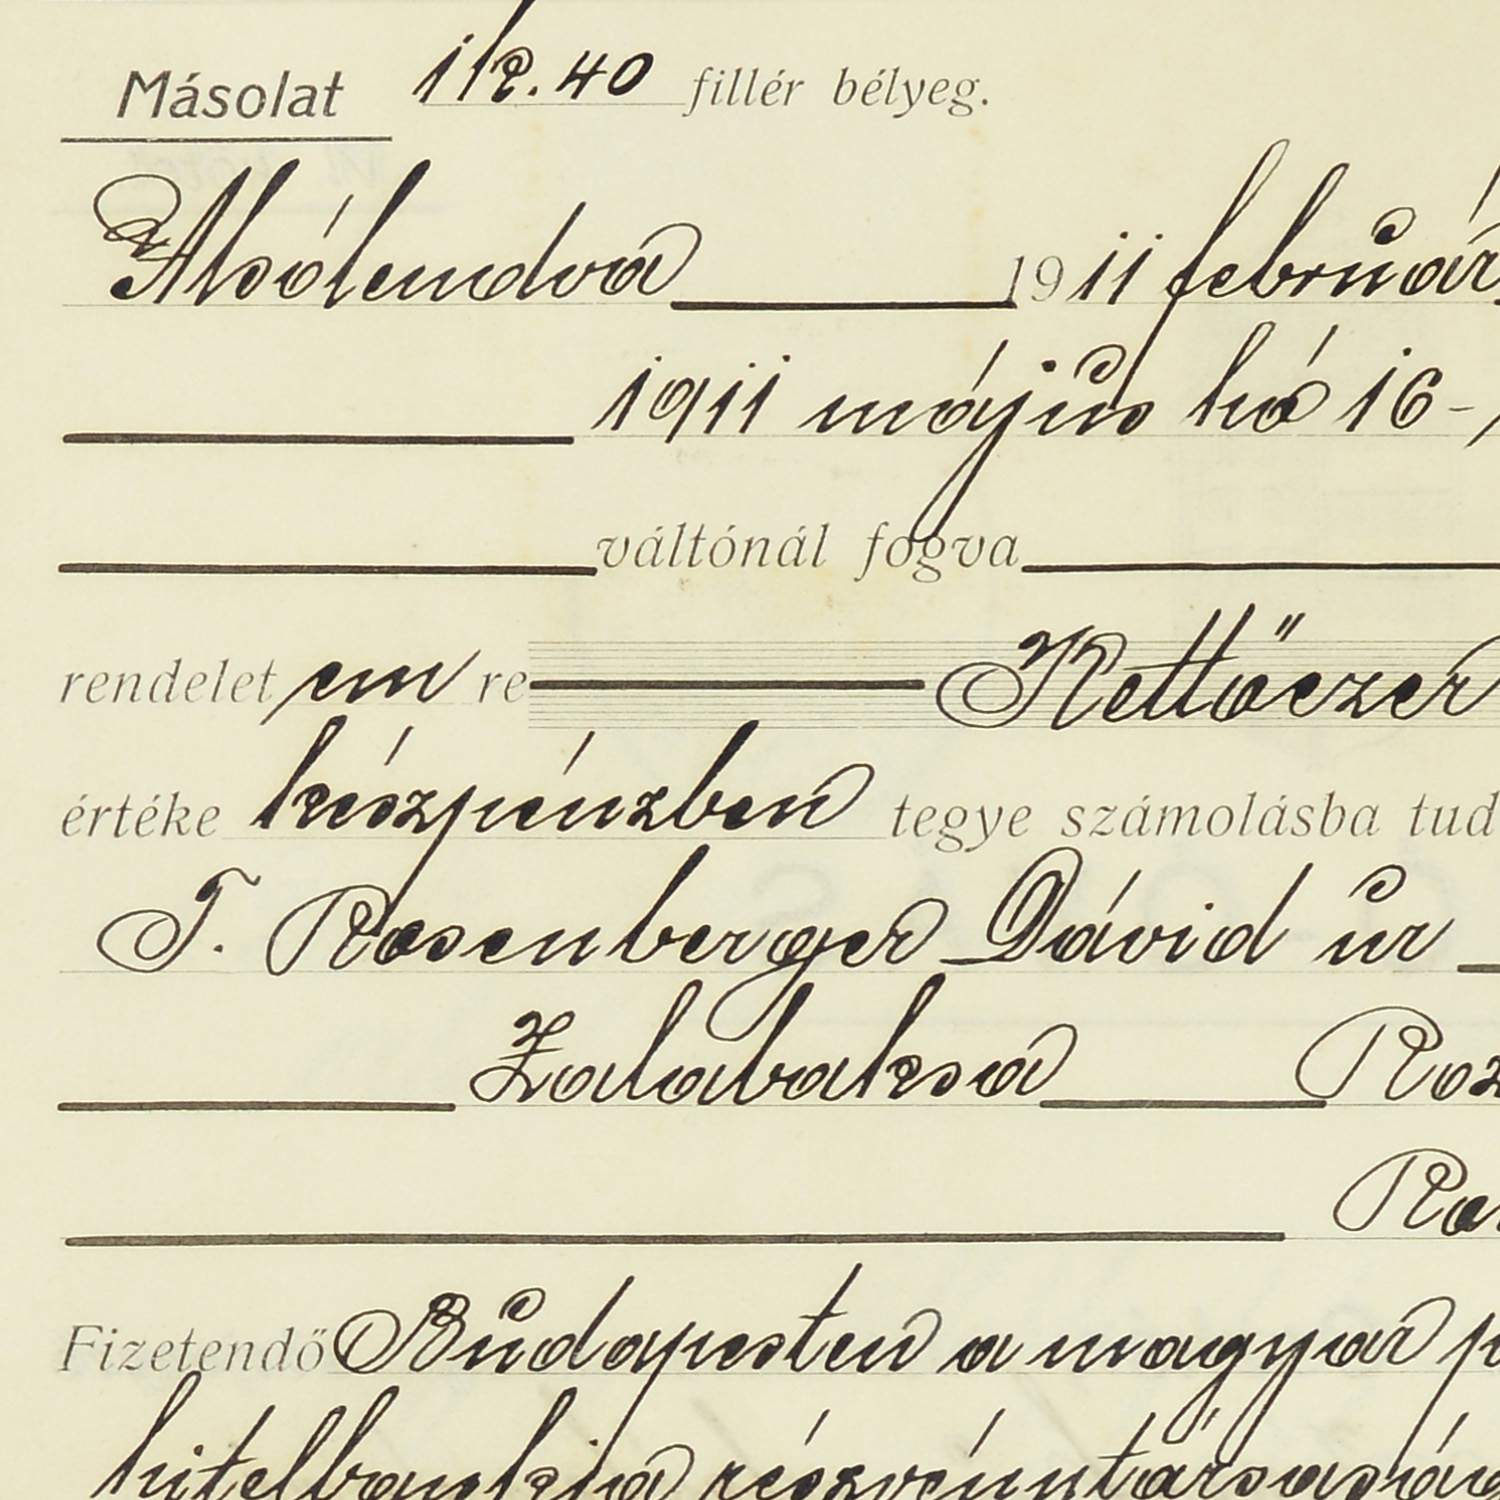 Másolat 1 K. 40 fillér bélyeg.
Alsólendva 1911 február
1911 május hó 16-
váltónál fogva
rendelet em re Kettőezer
értéke készpénzben tegye számolásba tud
T. Rosenberger Dávid úr
Zalabaksa Roz
Ro
Fizetendő Budapesten a magyar p
hitelbankja részvénytársaság